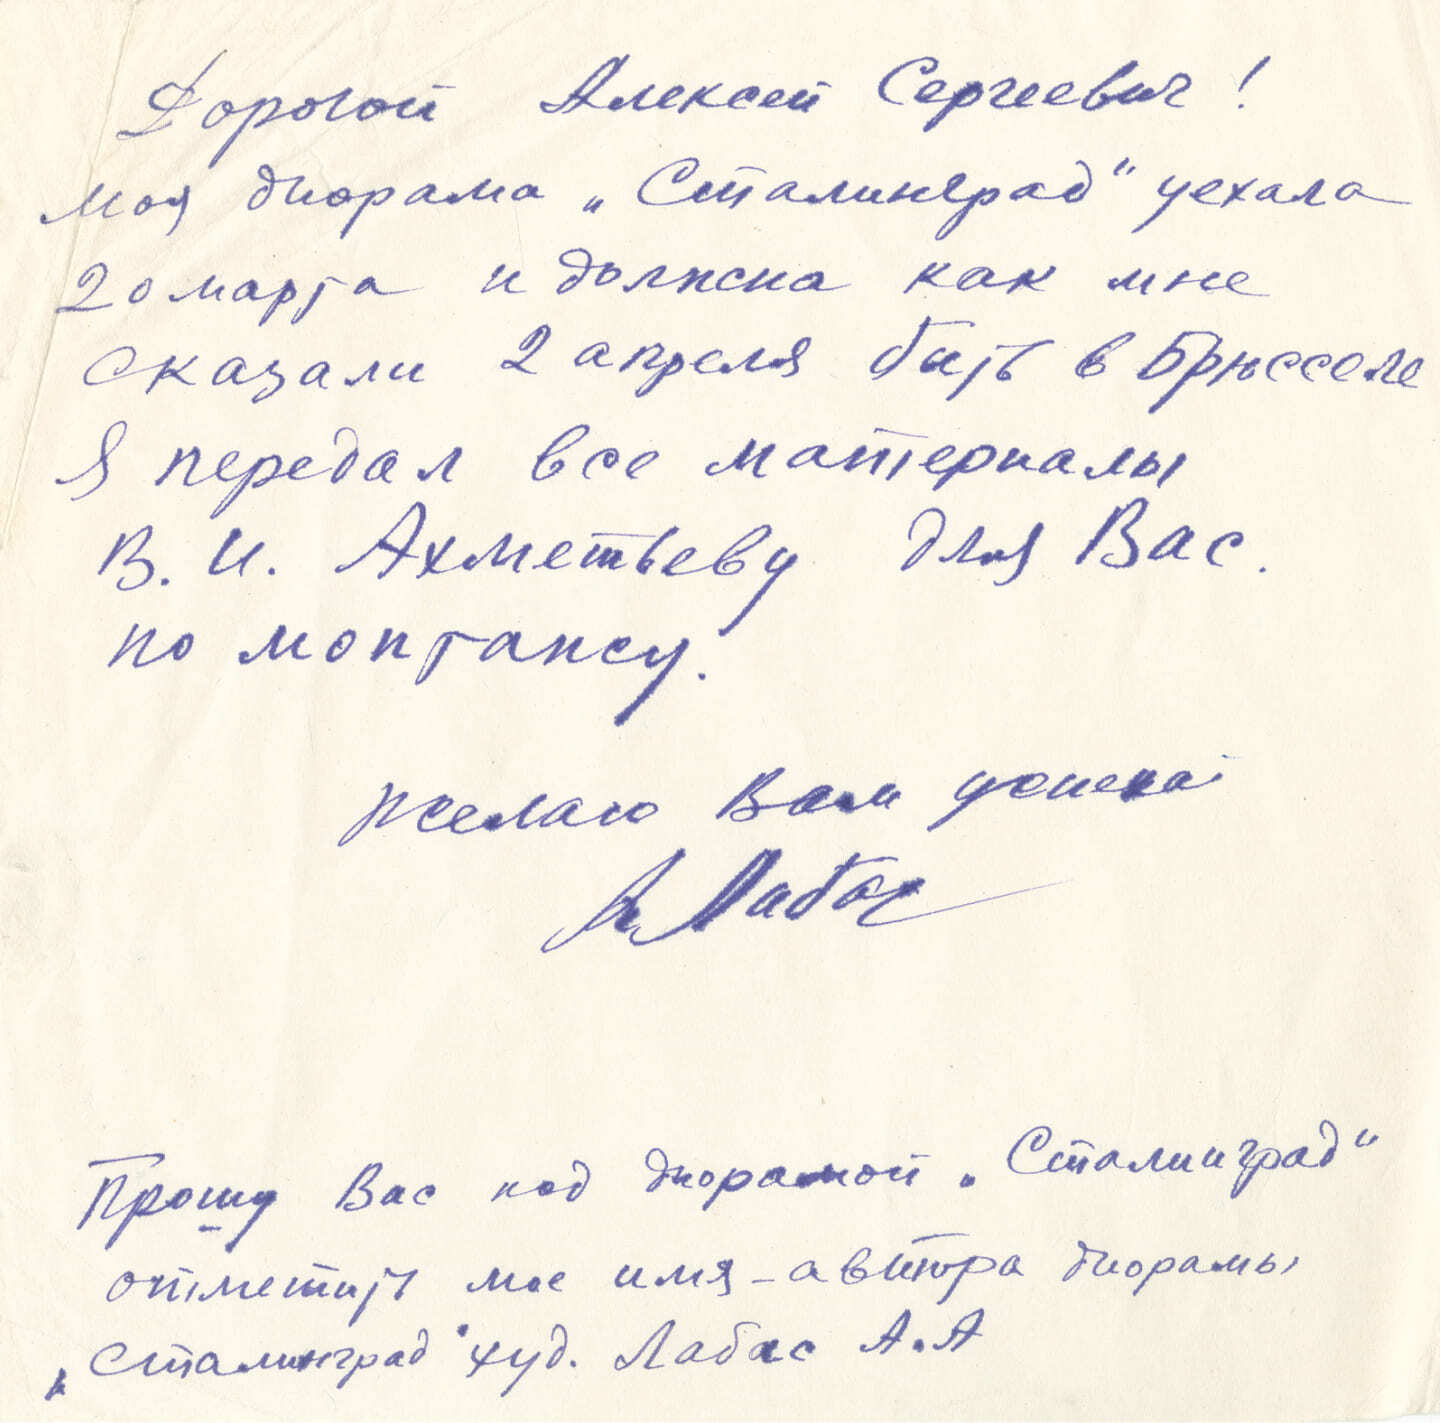 Дорогой Алексей Сергеевич!
моя диорама „Сталинград“ уехала
20 марта и должна как мне
сказали 2 апреля быть в Брюсселе
Я передал все материалы
В. И. Ахметьеву для Вас.
по монтажу.
Желаю Вам успеха
А Лабас
Прошу Вас под диорамой „Сталинград“
отметить мое имя - автора диорамы
„Сталинград“ худ. Лабас А.А